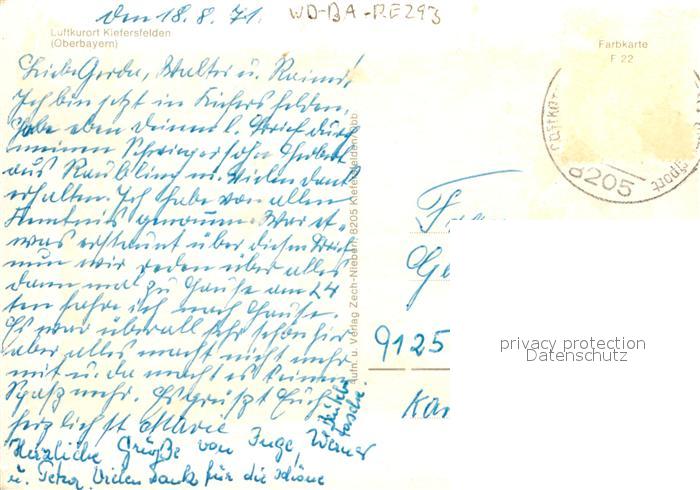 den 18. 8. 71.
WD-BA-RE293
Luftkurort Kiefersfelden
(Oberbayern)
Farbkarte
F 22
Liebe Gerda, Walter u. Raimu!
Ich bin jetzt in Kiefersfelden.
Habe eben deinen l. Brief durch
meinen Schwiegersohn Hubert
aus Raubling m. Vielen Dank
erhalten. Ich habe von allem
Kenntnis genommen. War et-
was erstaunt über diesen Brief
nun wir reden über alles
dann mal zu Hause am 24
ten fahre ich nach Hause.
Es war überall sehr schön hier
aber alles macht nicht mehr
mit u. da macht es keinen
Spaß mehr. Es grüßt Euch
herzlichst Marie
Herzliche Grüße von Inge, Werner
u. Petra. Vielen Dank für die schöne
Tasche.
Aufn. u. Verlag Zech-Niebert 8205 Kiefersfelden/Obb
Luftku
8205
Sport
Fr
Ge
9125
Ka
privacy protection
Datenschutz